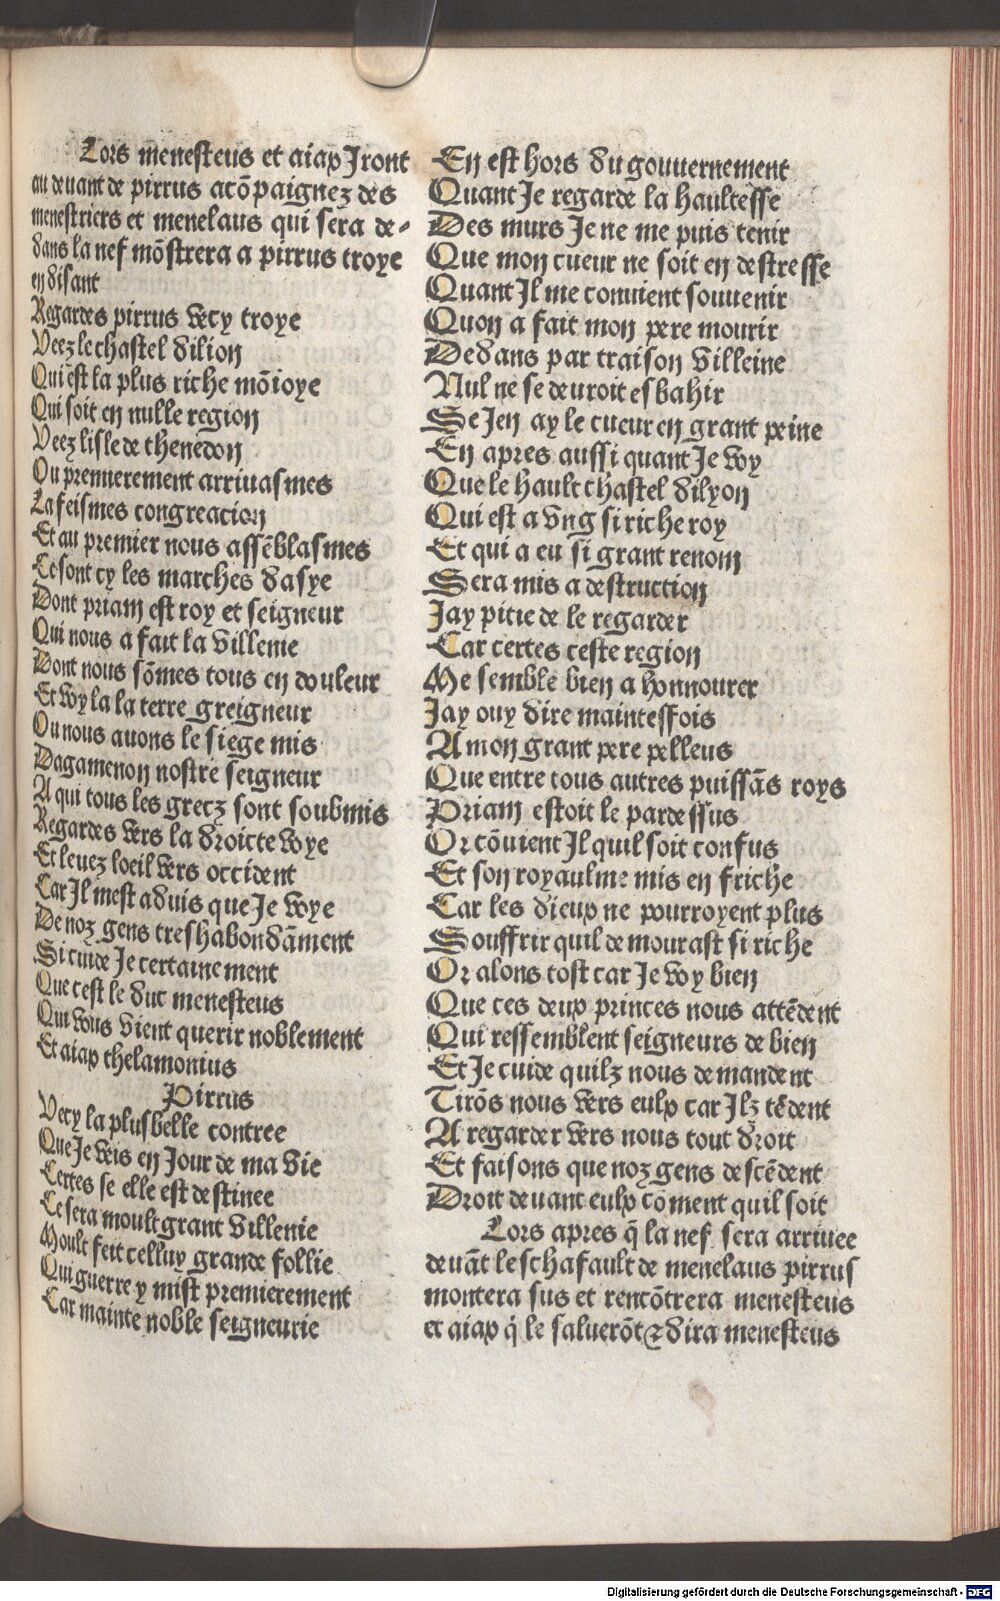 Lors menesteus et aiax Iront
au deuant de pirrus acōpaignez des
menestriers et menelaus qui sera de-
dans la nef mōstrera a pirrus troye
en disant
Regardes pirrus vecy troye
Veez le chastel dilion
Qui est la plus riche mōioye
Qui soit en nulle region
Veez lisle de thenedon
Ou premierement arriuasmes
La feismes congreacion
Et au premier nous assēblasmes
Ce sont cy les marches dasye
Dont priam est roy et seigneur
Qui nous a fait la villenie
Dont nous sōmes tous en douleur
Et voyla la terre greigneur
Ou nous auons le siege mis
Dagamenon nostre seigneur
A qui tous les grecz sont soubmis
Regardes vers la droicte voye
Et leuez loeil vers occident
Car Il mest aduis que Ie voye
De noz gens treshabondāment
Si cuide Ie certainement
Que cest le duc menesteus
Qui vous vient querir noblement
Et aiax thelamonius
Pirrus
Vecy la plus belle contree
Que Ie veis en Iour de ma vie
Certes se elle est destinee
Ce sera moult grant villenie
Moult feit celluy grande follie
Qui guerre y mist premierement
Car mainte noble seigneurie
En est hors du gouuernement
Quant Ie regarde la haultesse
Des murs Ie ne me puis tenir
Que mon cueur ne soit en destresse
Quant Il me conuient souuenir
Quon a fait mon pere mourir
Dedans par traison villeine
Nul ne se deuroit esbahir
Se Ien ay le cueur en grant peine
En apres aussi quant Ie voy
Que le hault chastel dilyon
Qui est a vng si riche roy
Et qui a eu si grant renom
Sera mis a destruction
Iay pitie de le regarder
Car certes ceste region
Me semble bien a honnourer
Iay ouy dire maintesfois
A mon grant pere pelleus
Que entre tous autres puissās roys
Priam estoit le pardessus
Or cōuient Il quil soit confus
Et son royaulme mis en friche
Car les dieux ne pourroyent plus
Souffrir quil demourast si riche
Or alons tost car Ie voy bien
Que ces deux princes nous attēdent
Qui ressemblent seigneurs de bien
Et Ie cuide quilz nous demandent
Tirōs nous vers eulx car Ilz tēdent
A regarder vers nous tout droit
Et faisons que noz gens descēdent
Droit deuant eulx cōment quil soit
Lors apres q̄ la nef sera arriuee
deuāt leschafault de menelaus pirrus
montera sus et rencōtrera menesteus
et aiax q̇ le saluerōt ⁊ dira menesteus
Digitalisierung gefördert durch die Deutsche Forschungsgemeinschaft - DFG